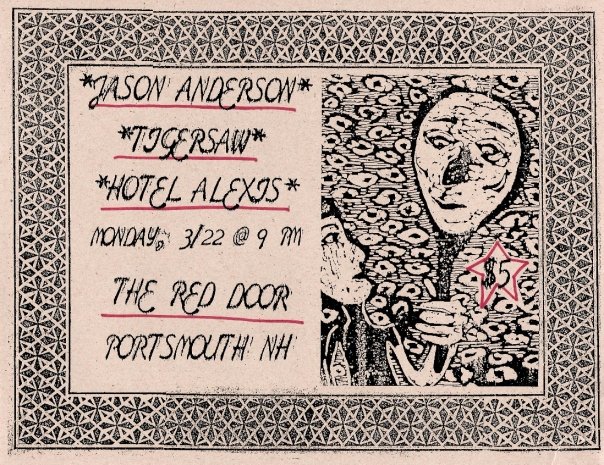 *JASON ANDERSON*
*TIGERSAW*
*HOTEL ALEXIS*
MONDAY, 3/22 @ 9 PM
THE RED DOOR
PORTSMOUTH NH
$5